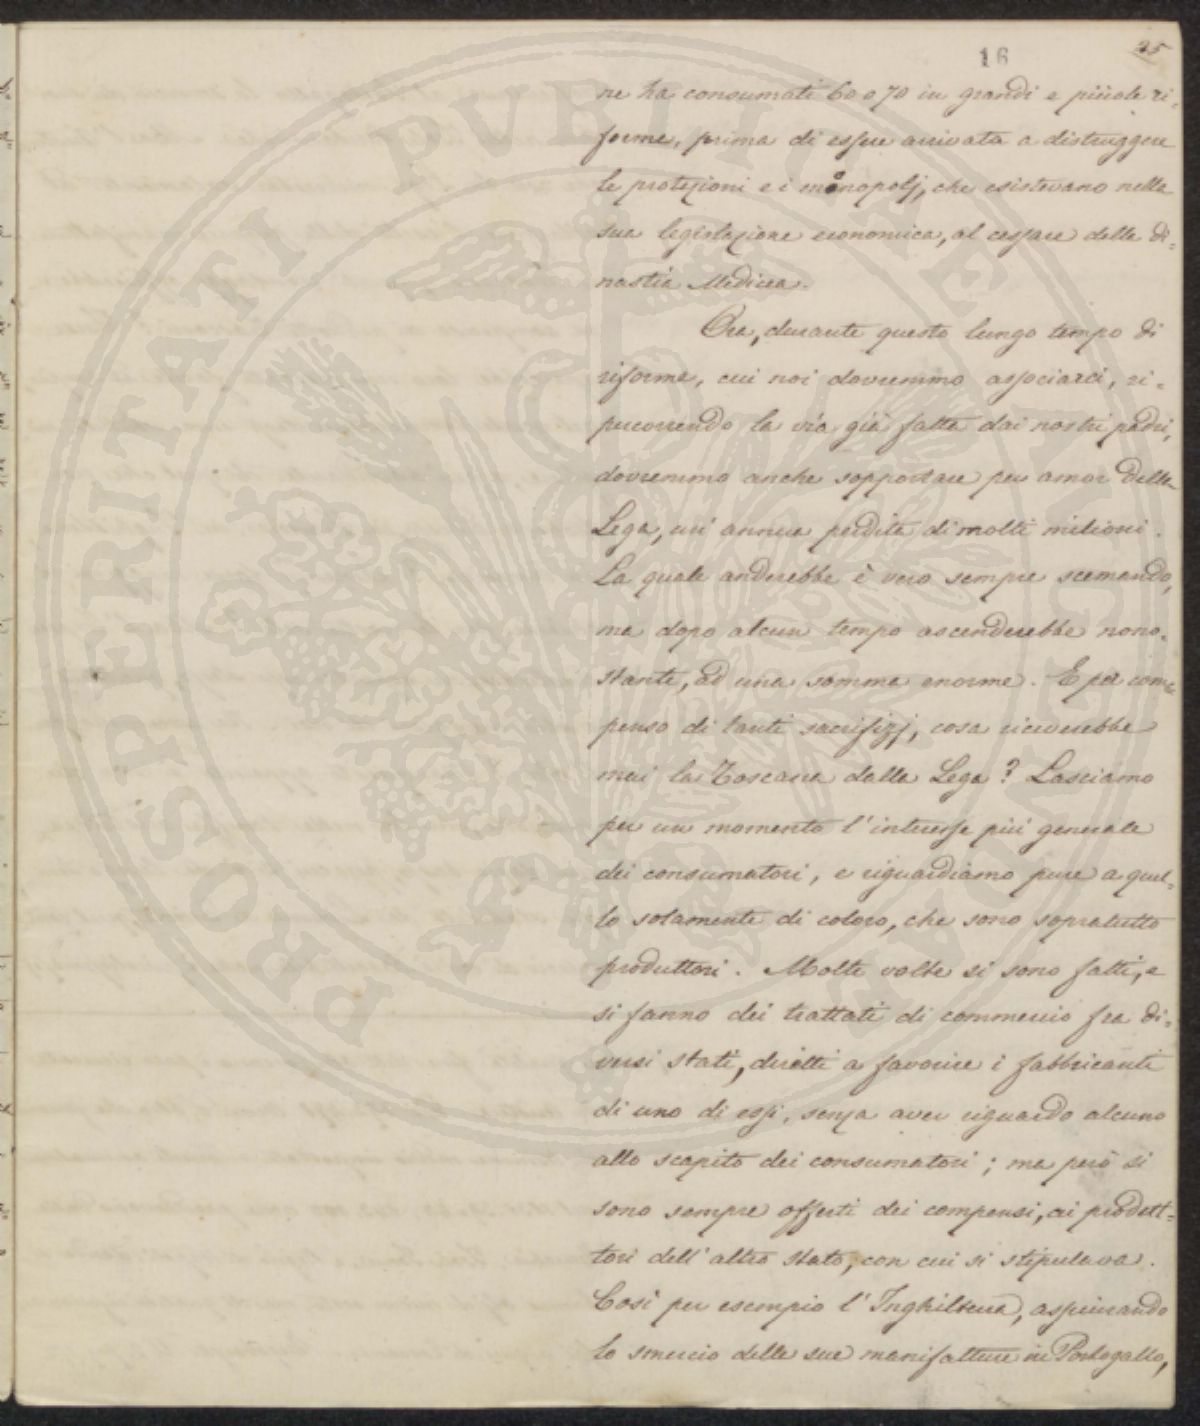 16
25
ne ha consumati 60 o 70 in grandi e piccole ri=
forme, prima di essere arrivata a distruggere
le protezioni e i monopolj, che esistevano nella
sua legislazione economica, al cessare della di=
nastia Medicea.
Ora, durante questo lungo tempo di
riforme, cui noi dovremmo associarci, ri=
percorrendo la via già fatta dai nostri padri,
dovremmo anche sopportare per amor della
Lega, un' annua perdita di molti milioni.
La quale anderebbe è vero sempre scemando,
ma dopo alcun tempo ascenderebbe nono=
stante, ad una somma enorme. E per com=
penso di tanti sacrifizj, cosa riceverebbe
mai la Toscana dalla Lega? Lasciamo
per un momento l'interesse più generale
dei consumatori, e riguardiamo pure a quel=
lo solamente di coloro, che sono sopratutto
produttori. Molte volte si sono fatti, e
si fanno dei trattati di commercio fra di=
versi stati, diretti a favorire i fabbricanti
di uno di essi, senza aver riguardo alcuno
allo scapito dei consumatori; ma però si
sono sempre offerti dei compensi, ai produt=
tori dell'altro stato, con cui si stipulava.
Così per esempio l'Inghilterra, assicurando
lo smercio delle sue manifatture in Portogallo,
PROSPERITATI PUBLICAE AUGENDAE